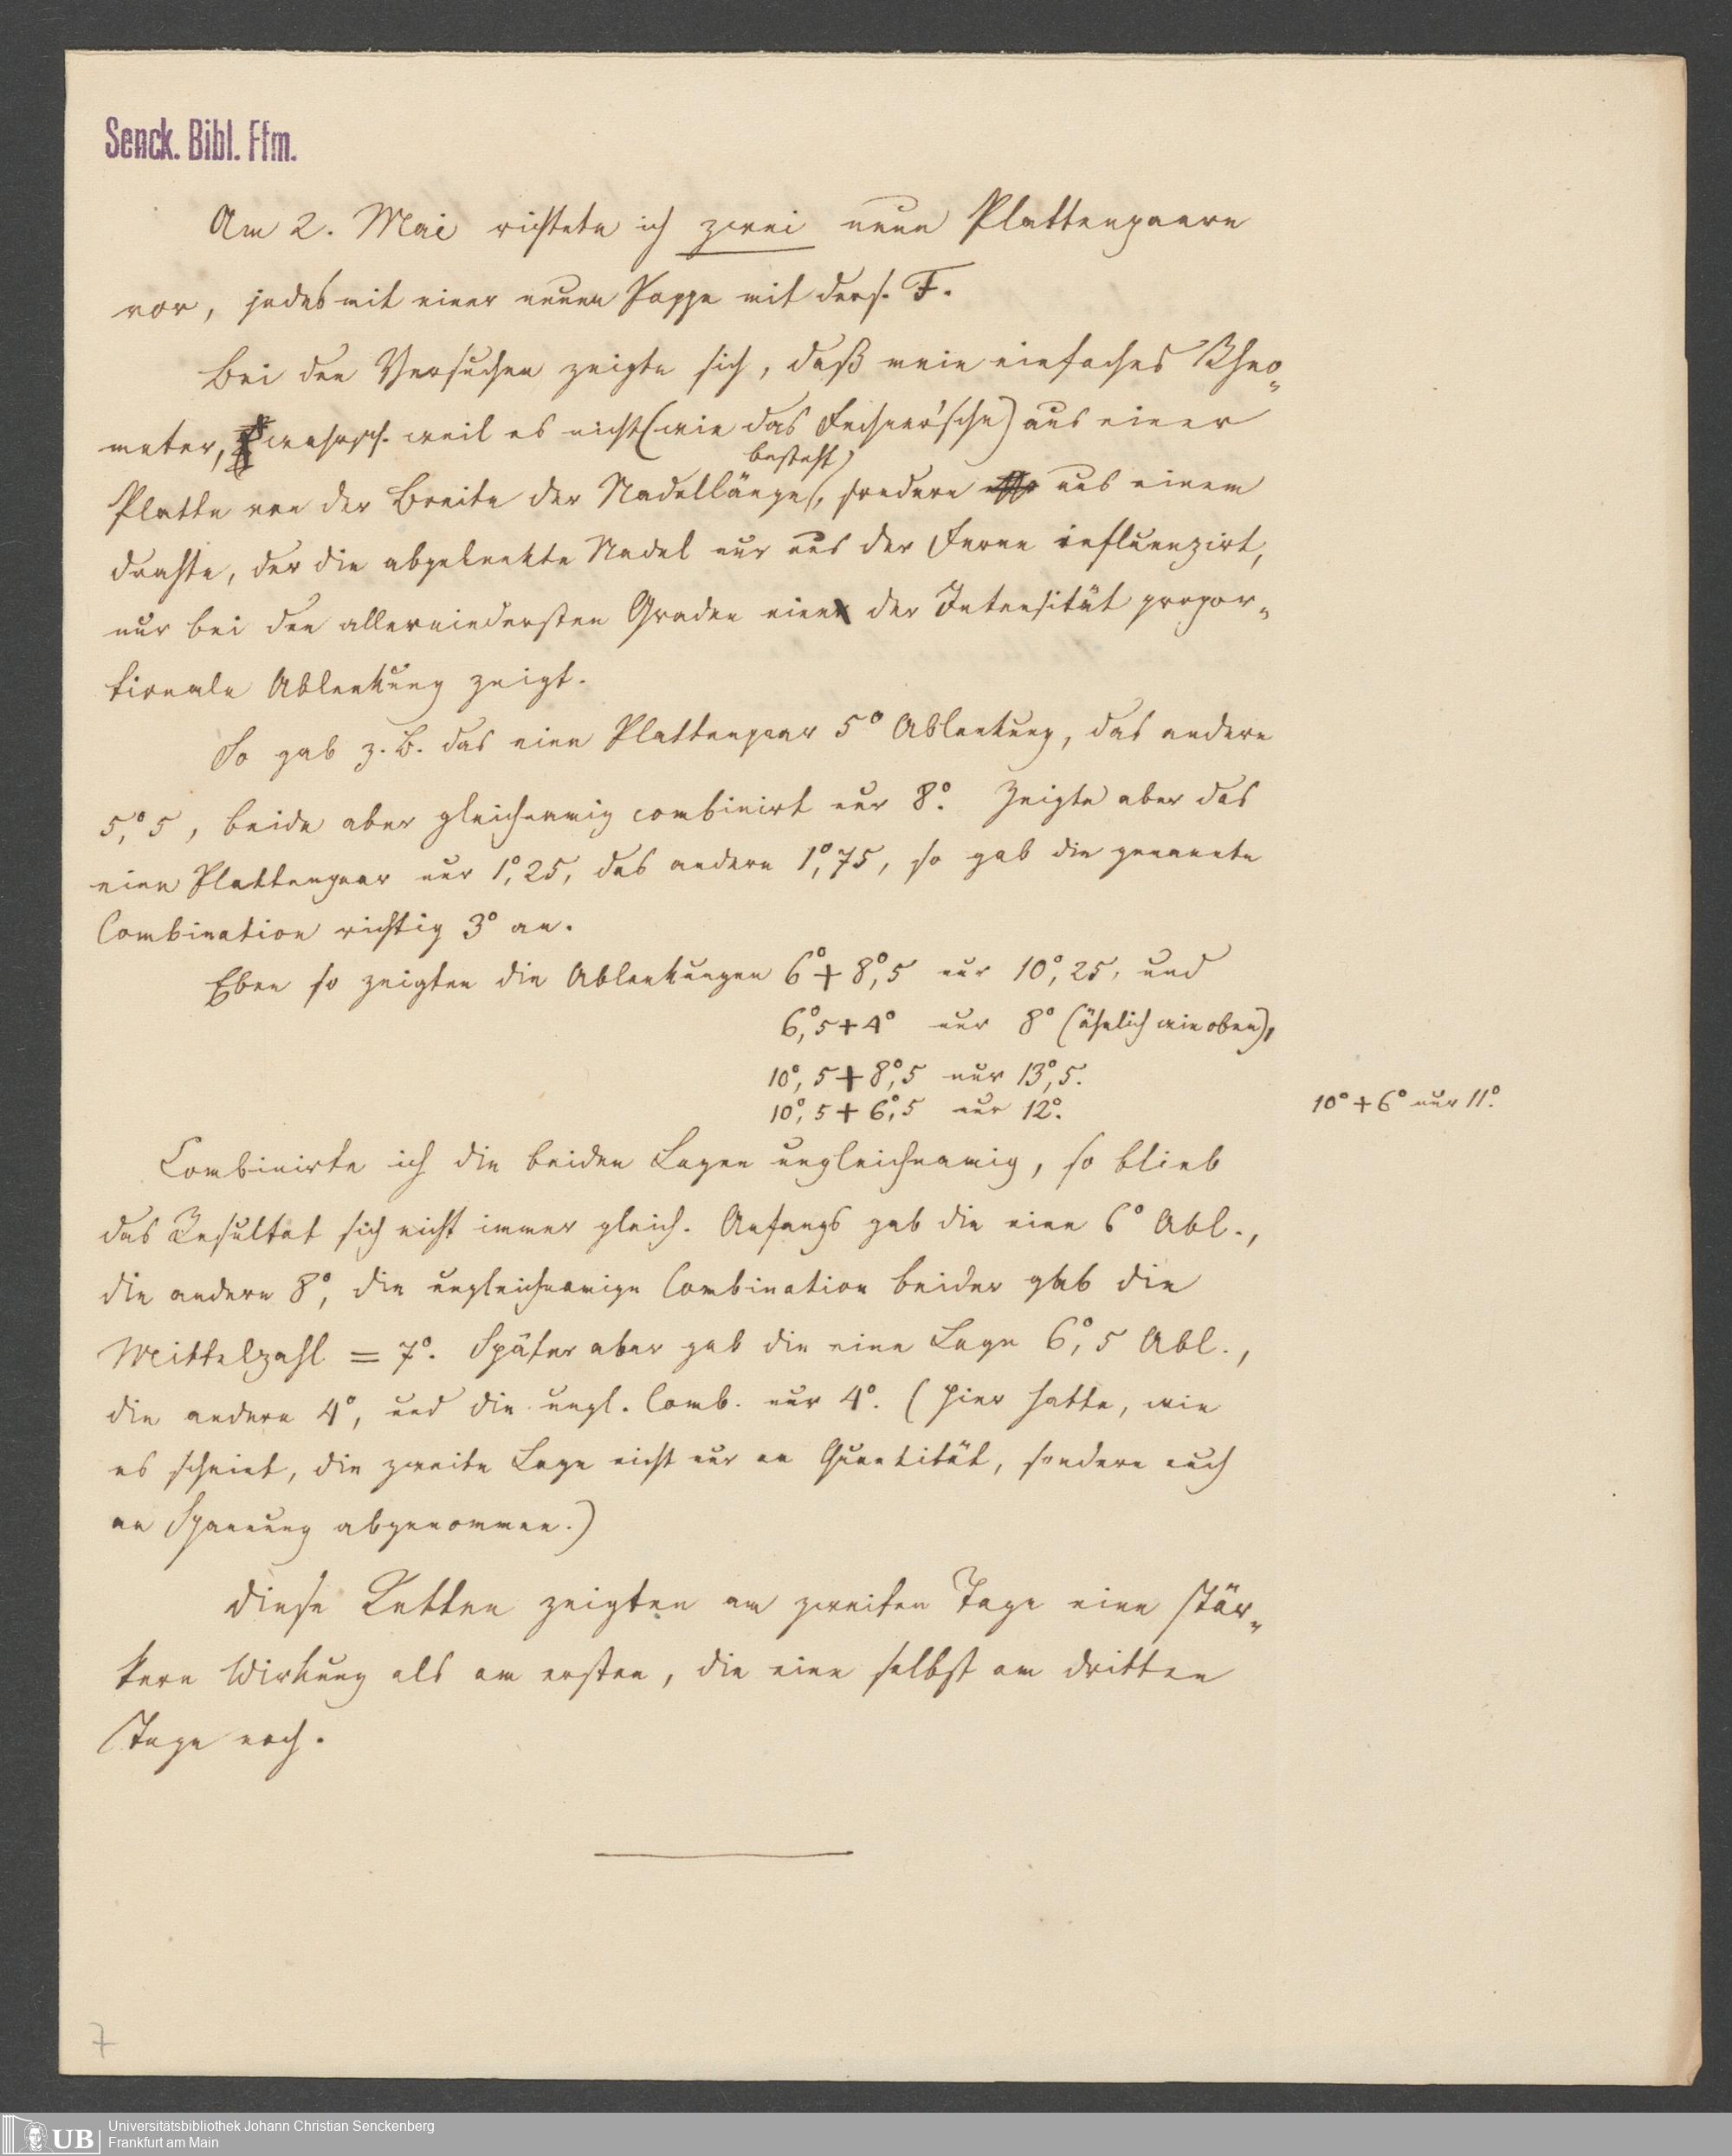 Senck. Bibl. Ffm.
Am 2. Mai richtete ich zwei neue Plattenpaare
vor, jedes mit einer neuen Pappe mit ders. F.
Bei den Versuchen zeigte sich, daß mein einfaches Rheo-
meter, wahrsch. weil es nicht (wie das Fechner'sche) aus einer
besteht,
Platte von der Breite der Nadellänge, sondern aus einem
Drahte, der die abgelenkte Nadel nur aus der Ferne influenzirt,
nur bei den allerniedersten Graden eine der Intensität propor-
tionale Ablenkung zeigt.
So gab z. B. das eine Plattenpaar 5° Ablenkung, das andere
5,°5, beide aber gleichnamig combinirt nur 8°. Zeigte aber das
eine Plattenpaar nur 1,°25, das andere 1,°75, so gab die genannte
Combination richtig 3° an.
Eben so zeigten die Ablenkungen 6° + 8,°5 nur 10,°25, und
6,°5 + 4° nur 8° (ähnlich wie oben),
10,°5 + 8,°5 nur 13,°5.
10,°5 + 6,°5 nur 12°.
10° + 6° nur 11°.
Combinirte ich die beiden Lagen ungleichnamig, so blieb
das Resultat sich nicht immer gleich. Anfangs gab die eine 6° Abl.,
die andere 8°, die ungleichnamige Combination beider gab die
Mittelzahl = 7°. Später aber gab die eine Lage 6,°5 Abl.,
die andere 4°, und die ungl. Comb. nur 4°. (Hier hatte, wie
es scheint, die zweite Lage nicht nur an Quantität, sondern auch
an Spannung abgenommen.)
Diese Ketten zeigten am zweiten Tage eine stär-
kere Wirkung als am ersten, die eine selbst am dritten
Tage noch.
7
UB
Universitätsbibliothek Johann Christian Senckenberg
Frankfurt am Main